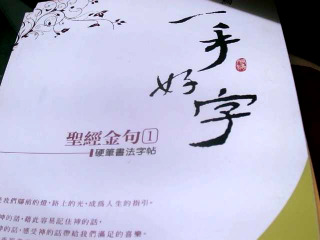 一手好字
聖經金句1
硬筆書法字帖
是我們腳前的燈，路上的光，成為人生的指引。
神的話，藉此容易記住神的話。
神的話，感受神的話帶給我們滿足的喜樂。